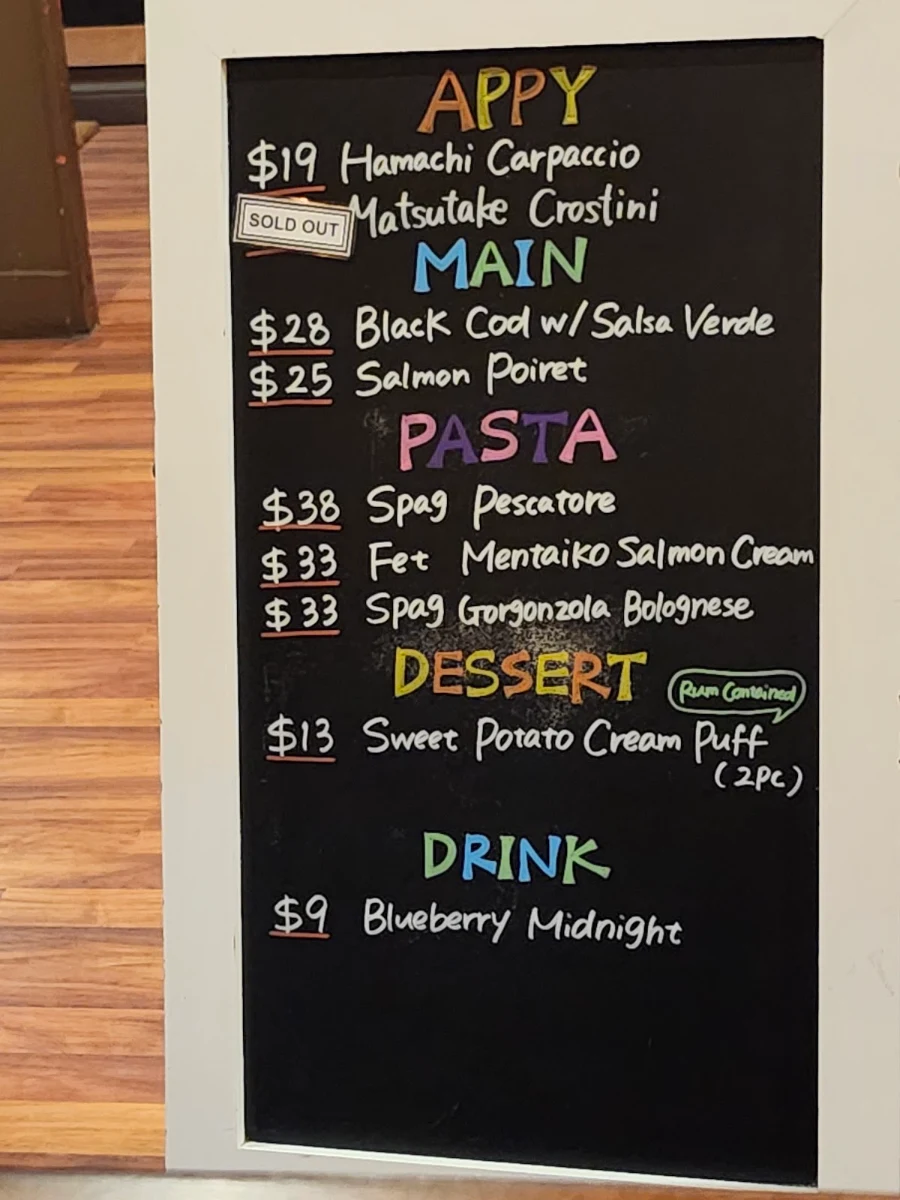 APPY
$19 Hamachi Carpaccio
SOLD OUT Matsutake Crostini
MAIN
$28 Black Cod w/ Salsa Verde
$25 Salmon Poiret
PASTA
$38 Spag Pescatore
$33 Fet Mentaiko Salmon Cream
$33 Spag Gorgonzola Bolognese
DESSERT
Rum Contained
$13 Sweet Potato Cream Puff
(2pc)
DRINK
$9 Blueberry Midnight